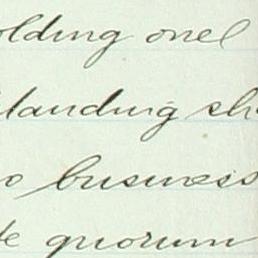 olding one
standing sh
o business
te quorum